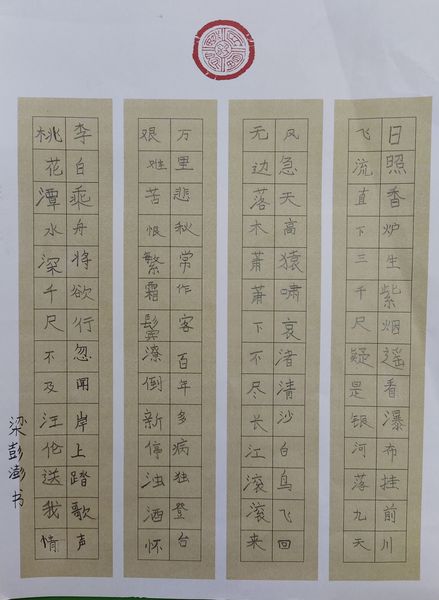 日照香炉生紫烟遥看瀑布挂前川
飞流直下三千尺疑是银河落九天
风急天高猿啸哀渚清沙白鸟飞回
无边落木萧萧下不尽长江滚滚来
万里悲秋常作客百年多病独登台
艰难苦恨繁霜鬓潦倒新停浊酒怀
李白乘舟将欲行忽闻岸上踏歌声
桃花潭水深千尺不及汪伦送我情
梁彭澎书